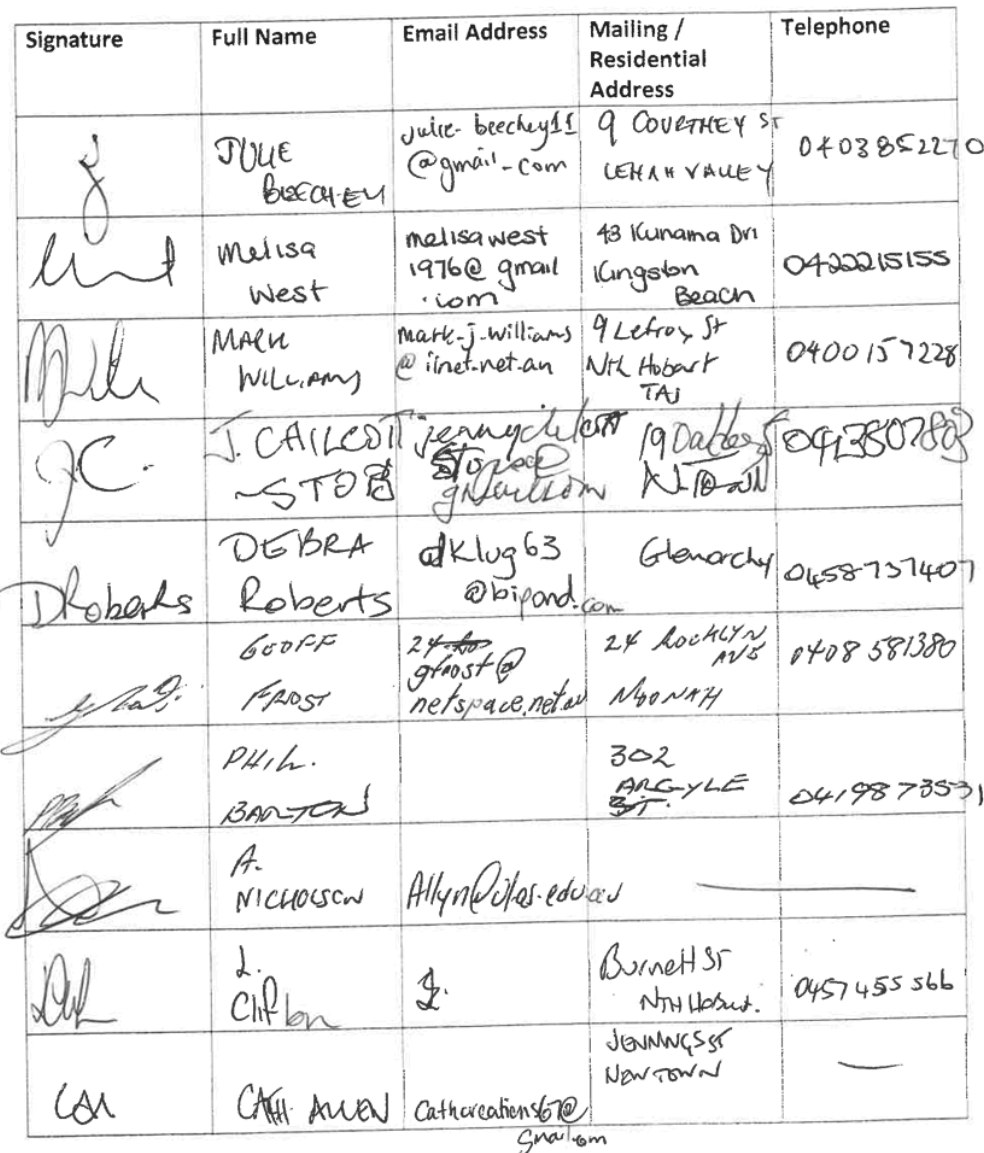 Signature
Full Name
Email Address
Mailing /
Residential
Address
Telephone
JULIE
BEECHEY
julie-beechey11
@gmail-com
9 COURTNEY ST
LENAH VALLEY
0403852270
Melisa
West
melisawest
1976@gmail
.com
43 Kunama Dri
Kingston
Beach
0422215155
MARK
WILLIAMS
mark-j-williams
@iinet.net.au
9 Lefroy St
Nth Hobart
TAS
0400157228
JC.
J.
19
N-TOWN
DRoberts
DEBRA
Roberts
dklug63
@bigpond.com
Glenorchy
0458737407
GEOFF
FROST
gfrost@
netspace.net.au
24 ROCHLYN
AVE
MOONAH
0408 581380
PHIL.
BARTON
302
ARGYLE
ST.
0419873531
A.
NICHOLSON
L.
Clifton
Burnett St
Nth Hobart.
0457455566
CATH ALLEN
Cathcreations67@
gmail.com
JENNINGS ST
NEWTOWN